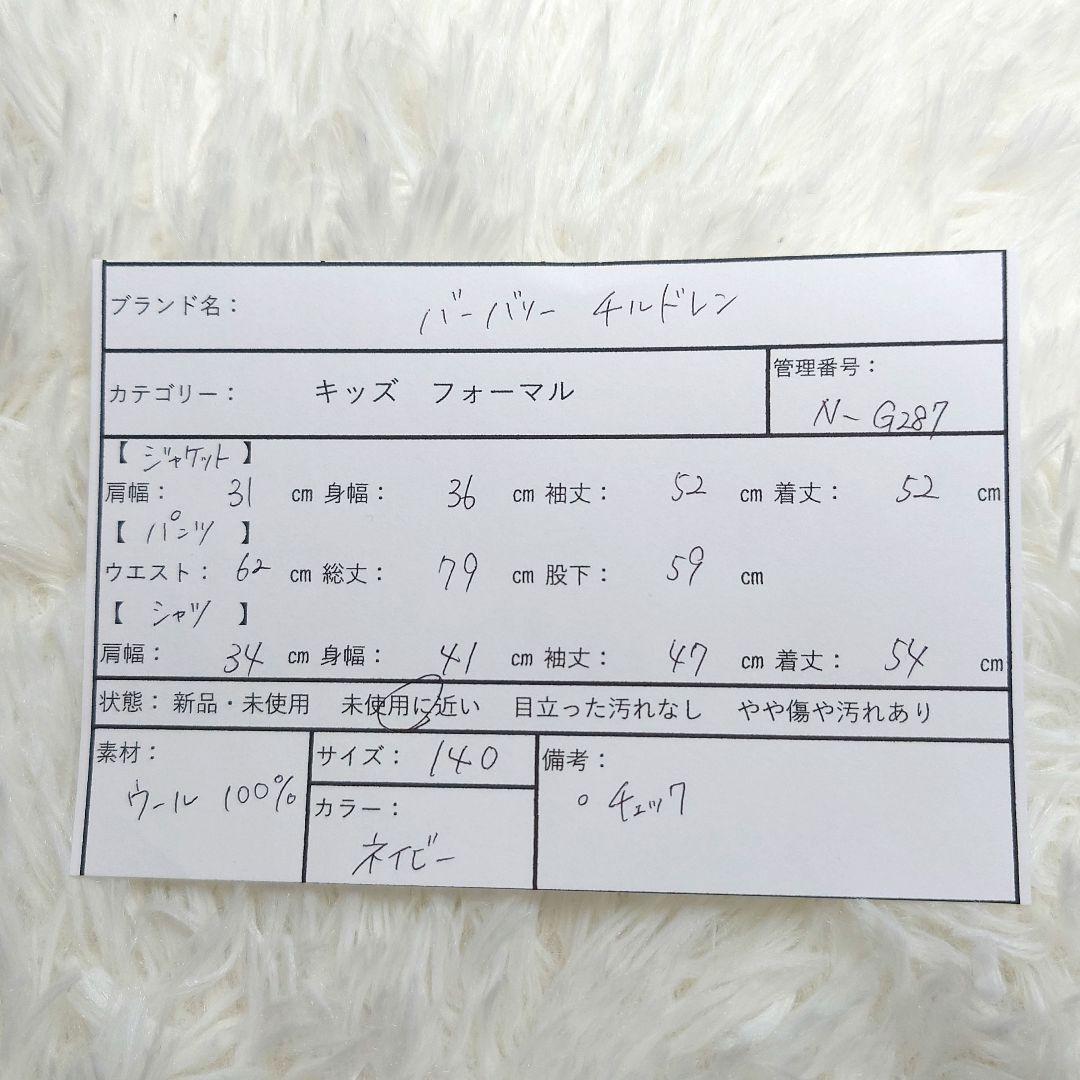 ブランド名： バーバリー チルドレン
カテゴリー： キッズ フォーマル
管理番号：
N-G287
【 ジャケット 】
肩幅： 31 ㎝ 身幅： 36 ㎝ 袖丈： 52 ㎝ 着丈： 52 ㎝
【 パンツ 】
ウエスト： 62 ㎝ 総丈： 79 ㎝ 股下： 59 ㎝
【 シャツ 】
肩幅： 34 ㎝ 身幅： 41 ㎝ 袖丈： 47 ㎝ 着丈： 54 ㎝
状態： 新品・未使用 未使用に近い 目立った汚れなし やや傷や汚れあり
素材：
ウール 100%
サイズ： 140
カラー：
ネイビー
備考：
○ チェック